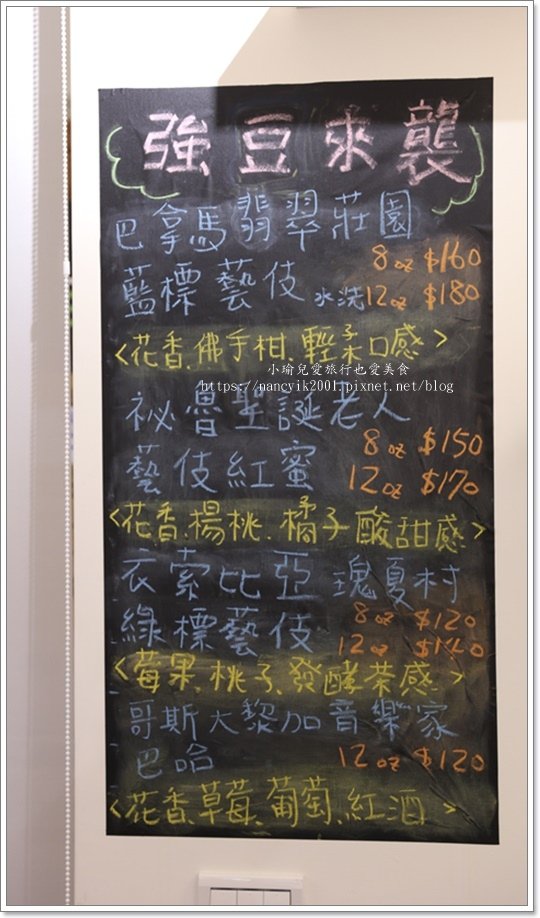 強豆來襲
巴拿馬翡翠莊園
8oz $160
藍標藝伎 水洗 12oz $180
<花香、佛手柑、輕柔口感>
小瑜兒愛旅行也愛美食
https://nancyik2001.pixnet.net/blog
祕魯聖誕老人
8oz $150
藝伎紅蜜 12oz $170
<花香、楊桃、橘子酸甜感>
衣索比亞 瑰夏村
8oz $120
綠標藝伎 12oz $140
<莓果、桃子、發酵茶感>
哥斯大黎加音樂家
巴哈 12oz $120
<花香、草莓、葡萄、紅酒>